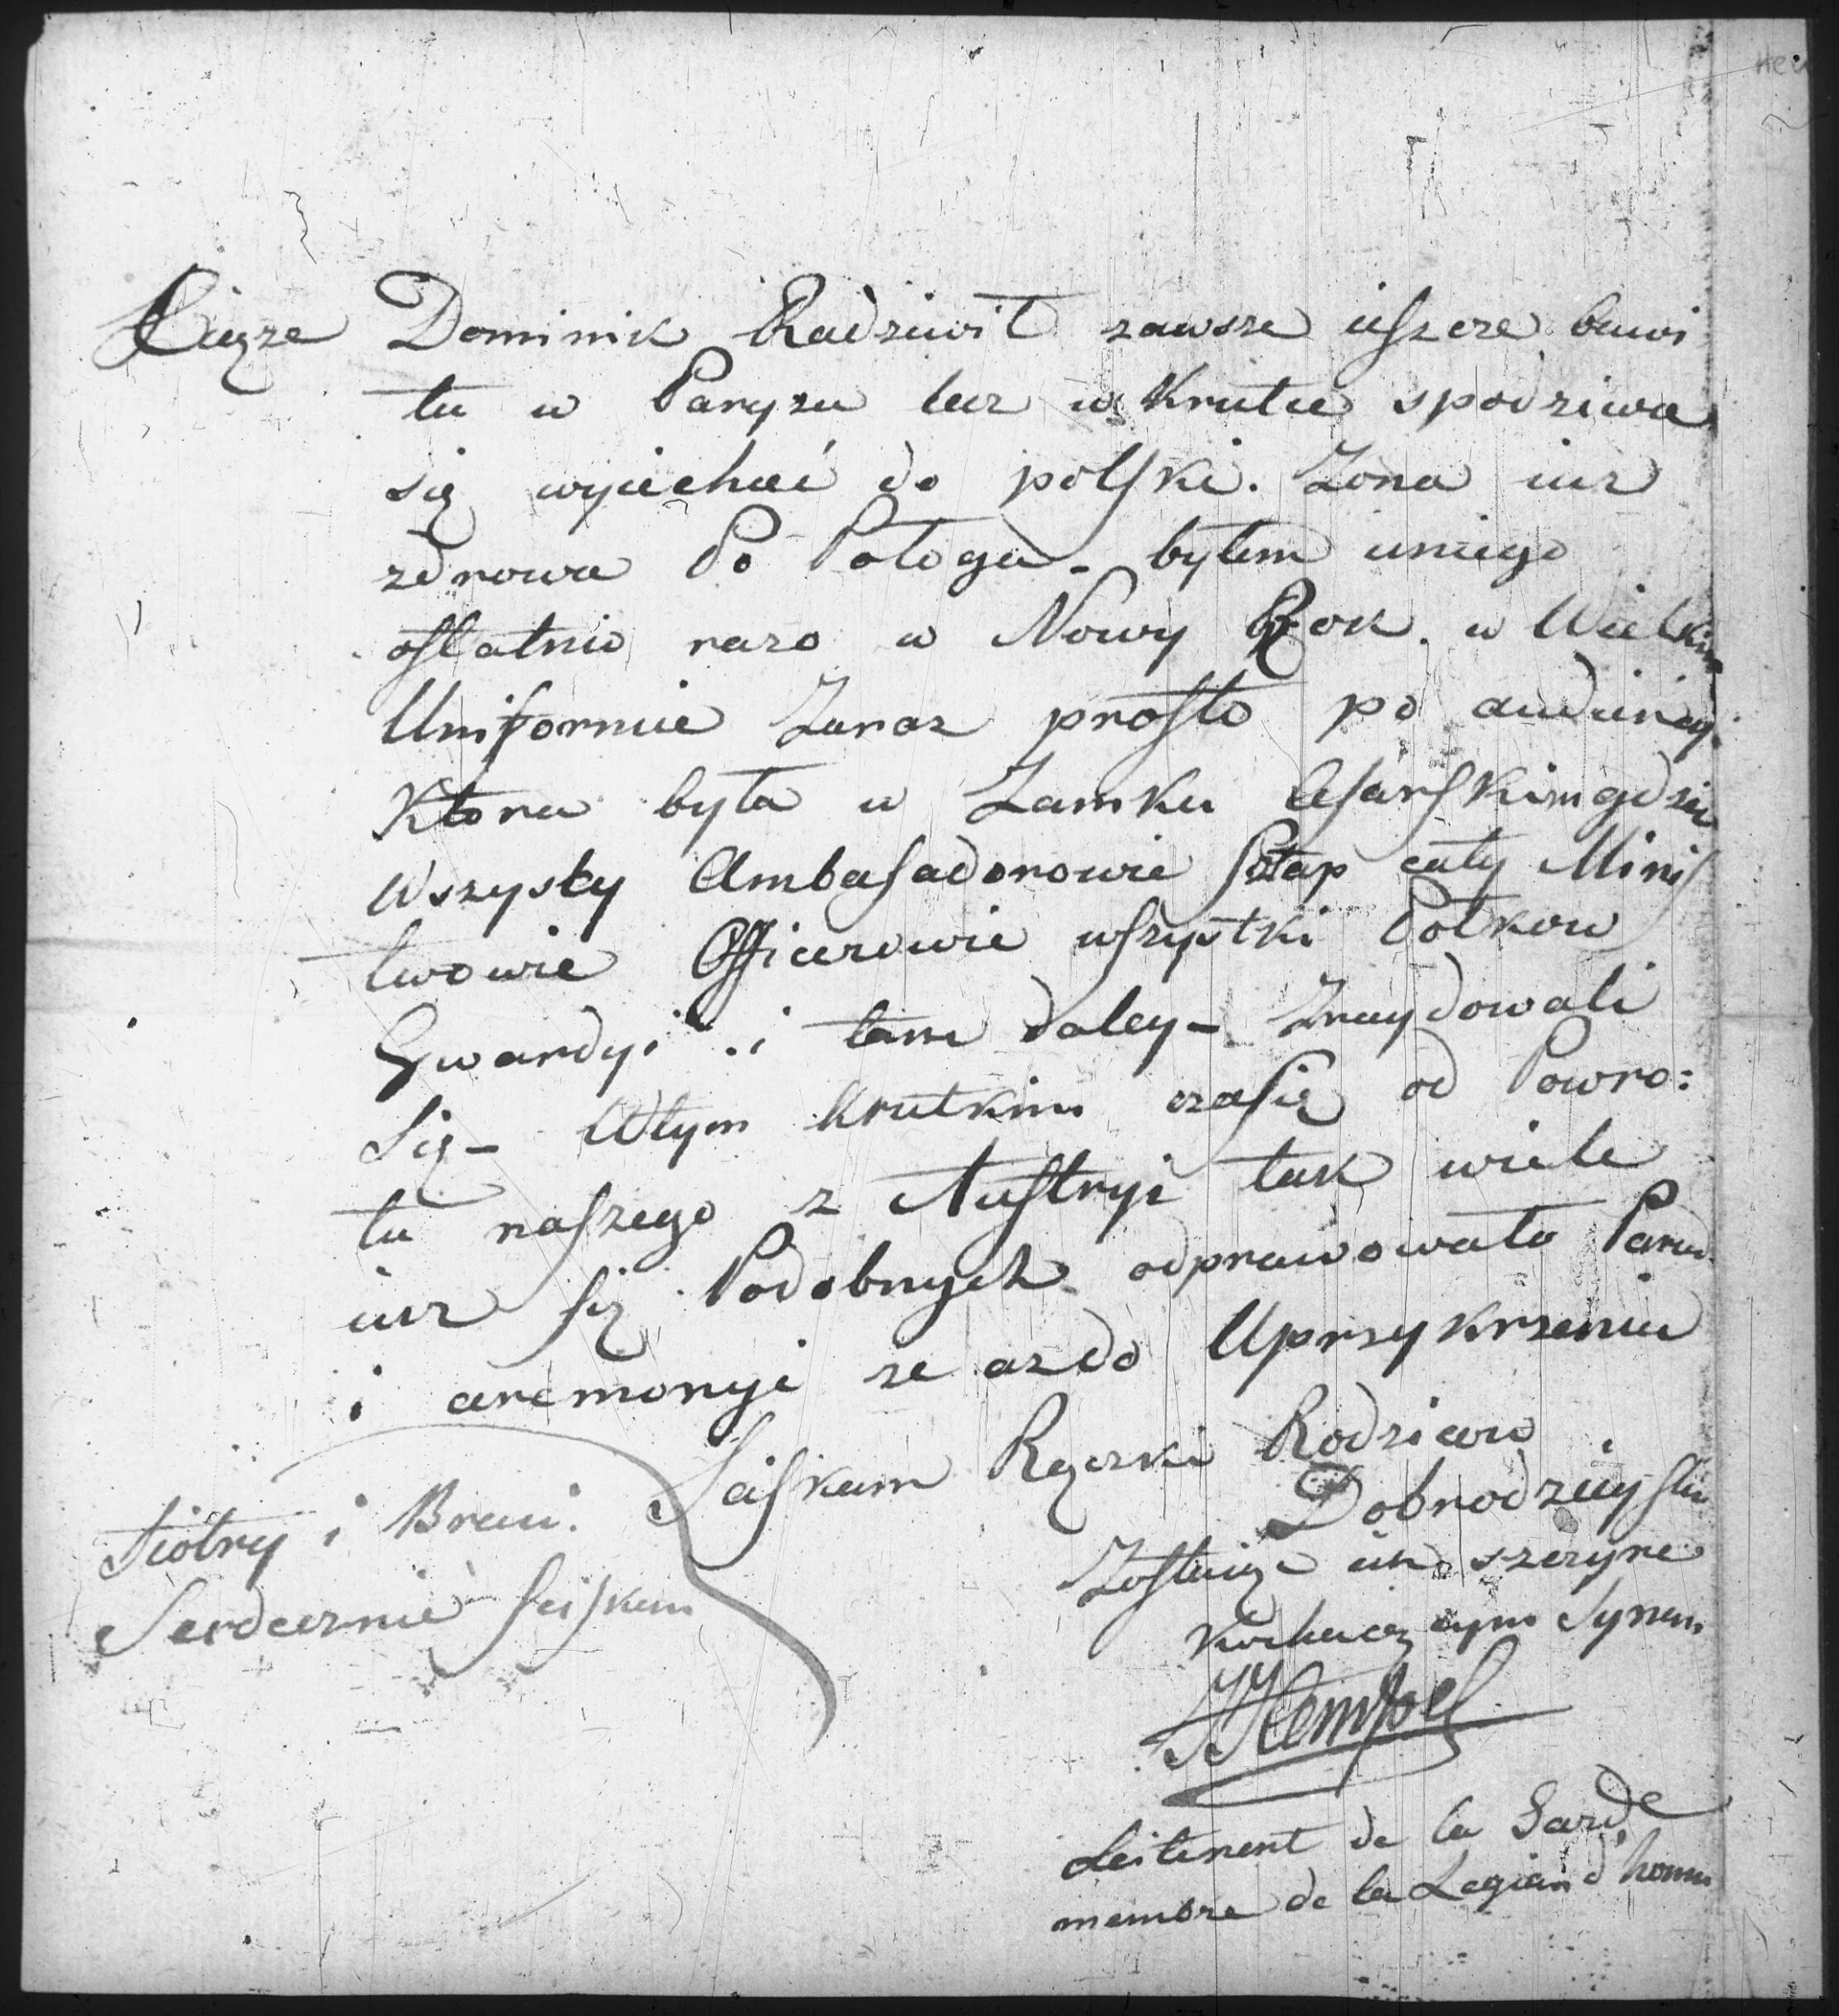 Xiąze Dominik Radziwił zawsze iefzcze bawi
tu w Paryzu lecz w Krutce spodziwa
się wyiechać do polfki. Zona iuz
zdrowa Po Pologu - byłem uniego
oftatnio razo w Nowy Rok. w Wielkim
Uniformie Zaraz profto po audiencyi
Ktora była w Zamku Cesarfkim gdzie
Wszyscy Ambafadorowie Sztap cały Minif
trowie Officerowie wfzystki Połkow
Gwardyi i tam daley - Znaydowali
Się - Wtym krutkim czafie od Powro:
tu nafzego z Auftryi tak wiele
iuz fię Podobnych odprawowało Parad
i ceremonyi ze azdo Uprzykrzenia
Scifkam Rączki Rodzicow
Dobrodzieyftw
Zoftaię iak szczyre
kochaiącym Synem
Hempel
Leitenent de la Garde
membre de la Legion d'honn
Siotry i Braci
Serdecznie scifkam